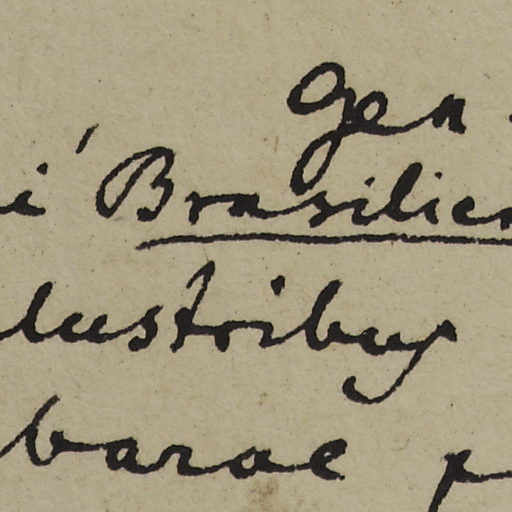 Gen.
i' Brasilien
lustribus
barae p